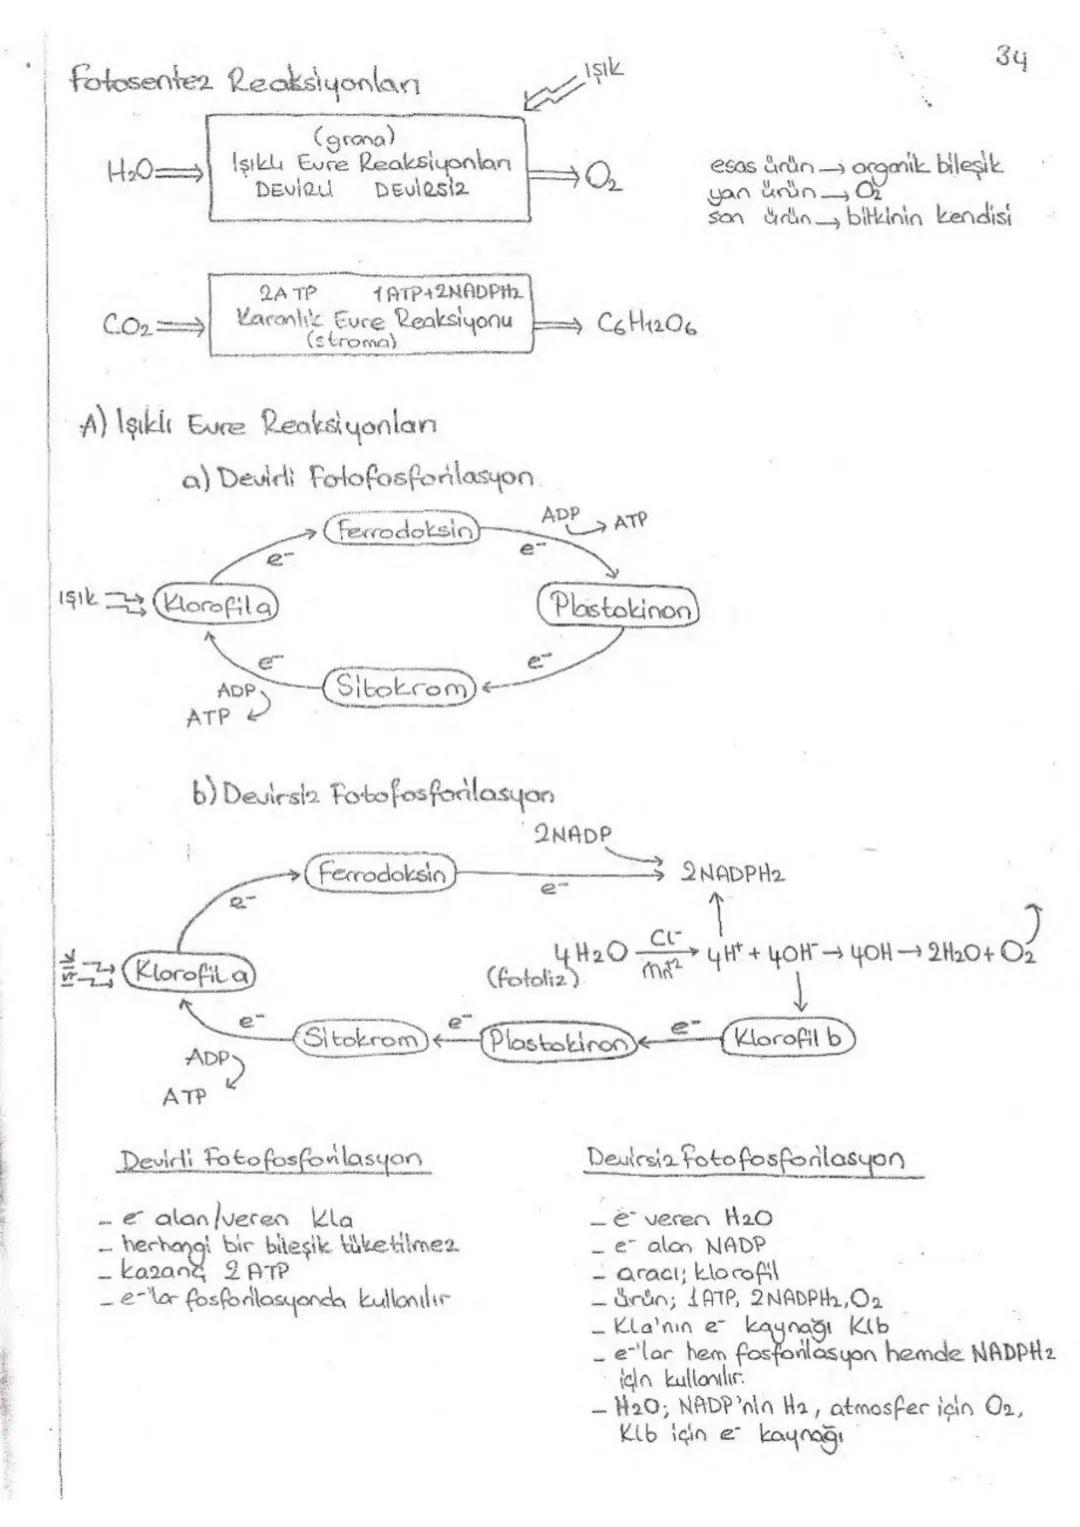 34
Fotosentez Reaksiyonları
Işık
(grana)
H2O ⇒ Işıklı Evre Reaksiyonları ⇒ O2
DEVİRLİ DEVİRSİZ
esas ürün → organik bileşik
yan ürün → O2
son ürün → bitkinin kendisi
2ATP 1ATP+2NADPH2
CO2 ⇒ Karanlık Evre Reaksiyonu ⇒ C6H12O6
(stroma)
A) Işıklı Evre Reaksiyonları
a) Devirli Fotofosforilasyon
Ferrodoksin
ADP → ATP
e-
e-
Işık
Klorofil a
Plastokinon
e-
e-
Sitokrom
ADP
ATP
b) Devirsiz Fotofosforilasyon
2NADP
Ferrodoksin
e-
2NADPH2
e-
Işık
Klorofil a
4H2O Cl- Mn+2 → 4H+ + 4OH- → 4OH → 2H2O + O2
(fotoliz)
e-
Sitokrom
e-
Plastokinon
e-
Klorofil b
ADP
ATP
Devirli Fotofosforilasyon
- e- alan/veren Kla
- herhangi bir bileşik tüketilmez
- kazanç 2 ATP
- e-'lar fosforilasyonda kullanılır
Devirsiz Fotofosforilasyon
- e- veren H2O
- e- alan NADP
- aracı; klorofil
- ürün; 1ATP, 2NADPH2, O2
- Kla'nın e- kaynağı Klb
- e-'lar hem fosforilasyon hemde NADPH2
için kullanılır.
- H2O; NADP'nin H2, atmosfer için O2,
Klb için e- kaynağı